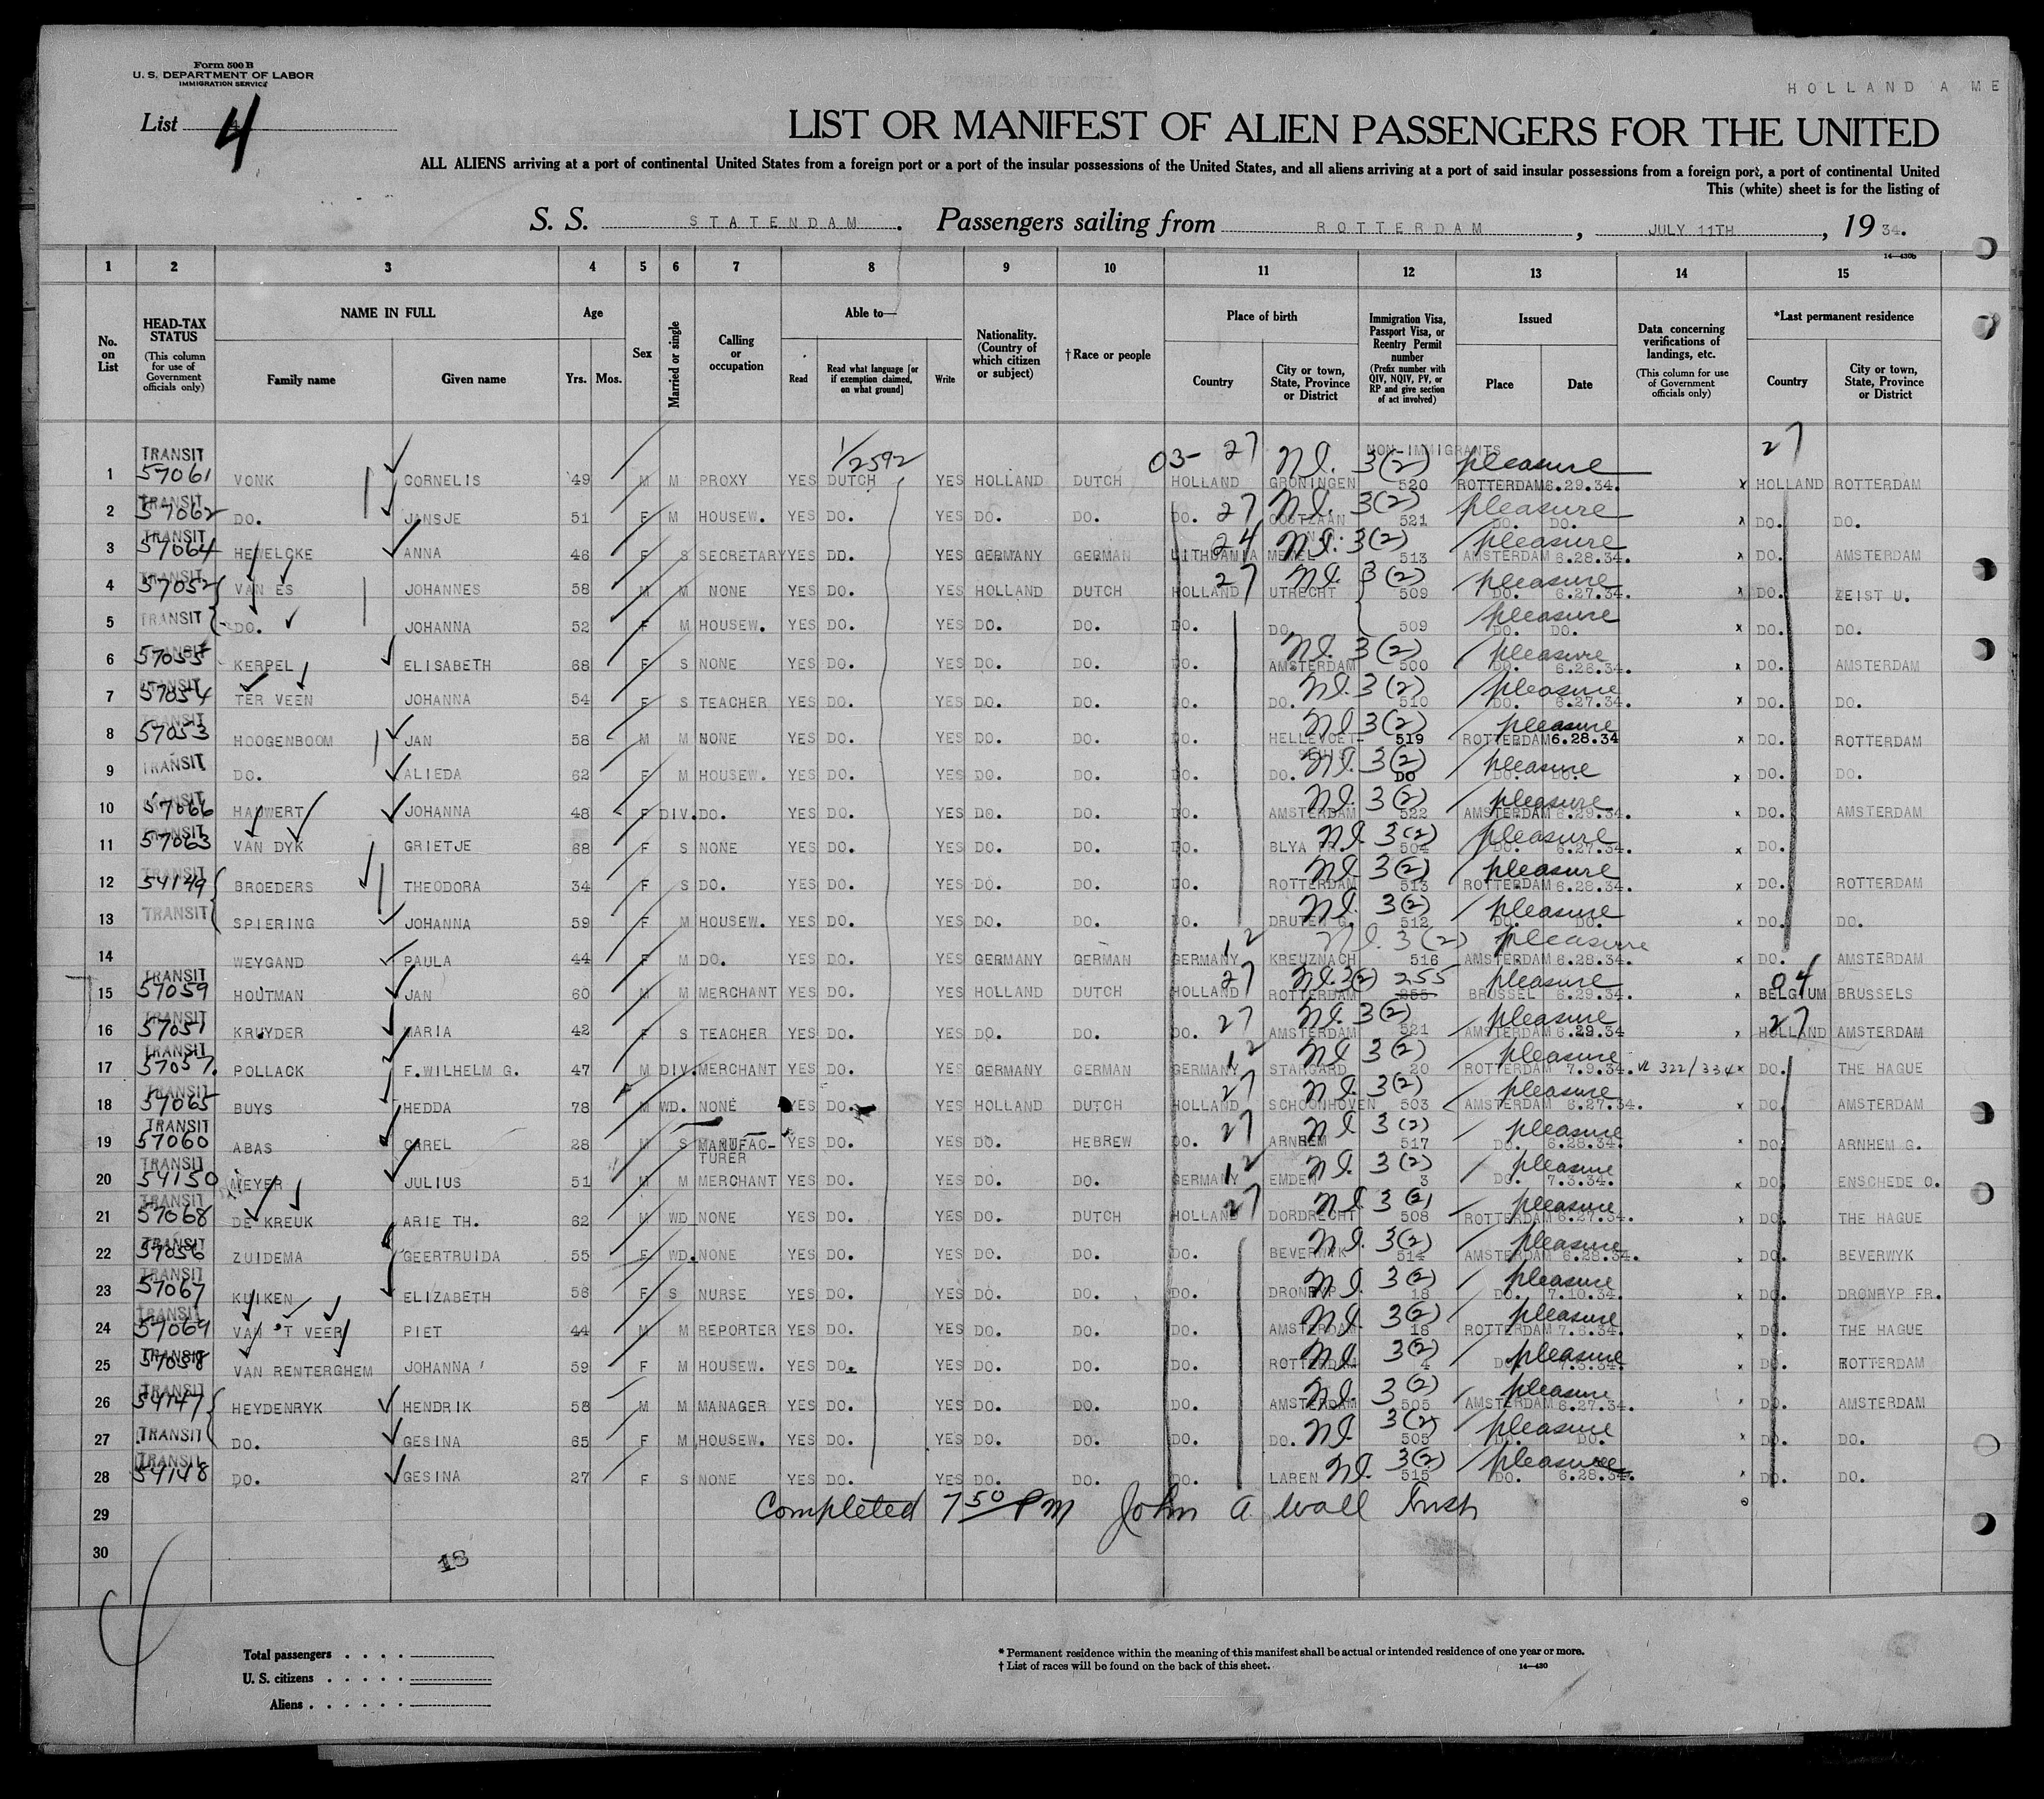 Form 500 B
U. S. DEPARTMENT OF LABOR
IMMIGRATION SERVICE
HOLLAND AME
List 4
LIST OR MANIFEST OF ALIEN PASSENGERS FOR THE UNITED
ALL ALIENS arriving at a port of continental United States from a foreign port or a port of the insular possessions of the United States, and all aliens arriving at a port of said insular possessions from a foreign port, a port of continental United
This (white) sheet is for the listing of
S. S. STATENDAM. Passengers sailing from ROTTERDAM, JULY 11TH, 19 34.
14—430b
1 2 3 4 5 6 7 8 9 10 11 12 13 14 15
No. on List
HEAD-TAX STATUS (This column for use of Government officials only)
NAME IN FULL Family name Given name
Age Yrs. Mos.
Sex
Married or single
Calling or occupation
Able to— Read Read what language [or if exemption claimed, on what ground] Write
Nationality. (Country of which citizen or subject)
†Race or people
Place of birth Country City or town, State, Province or District
Immigration Visa, Passport Visa, or Reentry Permit number (Prefix number with QIV, NQIV, PV, or RP and give section of act involved)
Issued Place Date
Data concerning verifications of landings, etc. (This column for use of Government officials only)
*Last permanent residence Country City or town, State, Province or District
1/2592 03- 27 NON-IMMIGRANTS 27
1 TRANSIT 57061 VONK CORNELIS 49 M M PROXY YES DUTCH YES HOLLAND DUTCH HOLLAND GRONINGEN 3(2) 520 pleasure ROTTERDAM 6.29.34. x HOLLAND ROTTERDAM
2 TRANSIT 57062 DO. JANSJE 51 F M HOUSEW. YES DO. YES DO. DO. DO. 27 OOSTZAAN 3(2) 521 pleasure DO. DO. x DO. DO.
3 TRANSIT 57064 HEWELCKE ANNA 46 F S SECRETARY YES DO. YES GERMANY GERMAN LITHUANIA 24 MEMEL 3(2) 513 pleasure AMSTERDAM 6.28.34. x DO. AMSTERDAM
4 TRANSIT 57052 VAN ES JOHANNES 58 M M NONE YES DO. YES HOLLAND DUTCH HOLLAND 27 UTRECHT 3(2) 509 pleasure DO. 6.27.34. x DO. ZEIST U.
5 TRANSIT DO. JOHANNA 52 F M HOUSEW. YES DO. YES DO. DO. DO. DO. 509 pleasure DO. DO. x DO. DO.
6 TRANSIT 57055 KERPEL ELISABETH 68 F S NONE YES DO. YES DO. DO. DO. AMSTERDAM 3(2) 500 pleasure DO. 6.26.34. x DO. AMSTERDAM
7 TRANSIT 57054 TER VEEN JOHANNA 54 F S TEACHER YES DO. YES DO. DO. DO. DO. 3(2) 510 pleasure DO. 6.27.34. x DO. DO.
8 TRANSIT 57053 HOOGENBOOM JAN 58 M M NONE YES DO. YES DO. DO. DO. HELLEVOET- 3(2) 519 pleasure ROTTERDAM 6.28.34 x DO. ROTTERDAM
9 TRANSIT DO. ALIEDA 62 F M HOUSEW. YES DO. YES DO. DO. DO. DO. 3(2) DO pleasure x DO. DO.
10 TRANSIT 57066 HAUWERT JOHANNA 48 F DIV. DO. YES DO. YES DO. DO. DO. AMSTERDAM 3(2) 522 pleasure AMSTERDAM 6.29.34. x DO. AMSTERDAM
11 TRANSIT 57063 VAN DYK GRIETJE 68 F S NONE YES DO. YES DO. DO. DO. BLYA 3(2) 504 pleasure DO. 6.27.34. x DO.
12 TRANSIT 54149 BROEDERS THEODORA 34 F S DO. YES DO. YES DO. DO. DO. ROTTERDAM 3(2) 513 pleasure ROTTERDAM 6.28.34. x DO. ROTTERDAM
13 TRANSIT SPIERING JOHANNA 59 F M HOUSEW. YES DO. YES DO. DO. DO. DRUTEN 3(2) 512 pleasure DO. DO. x DO. DO.
14 WEYGAND PAULA 44 F M DO. YES DO. YES GERMANY GERMAN GERMANY 12 KREUZNACH 3(2) 516 pleasure AMSTERDAM 6.28.34. x DO. AMSTERDAM
15 TRANSIT 57059 HOUTMAN JAN 60 M M MERCHANT YES DO. YES HOLLAND DUTCH HOLLAND 27 ROTTERDAM 3(2) 255 pleasure BRUSSEL 6.29.34. x BELGIUM 04 BRUSSELS
16 TRANSIT 57051 KRUYDER MARIA 42 F S TEACHER YES DO. YES DO. DO. DO. 27 AMSTERDAM 3(2) 521 pleasure AMSTERDAM 6.29.34 x HOLLAND 27 AMSTERDAM
17 TRANSIT 57057. POLLACK F.WILHELM G. 47 M DIV. MERCHANT YES DO. YES GERMANY GERMAN GERMANY 12 STARGARD 3(2) 20 pleasure ROTTERDAM 7.9.34. 322/334 x DO. THE HAGUE
18 TRANSIT 57065 BUYS HEDDA 78 M WD. NONE YES DO. YES HOLLAND DUTCH HOLLAND 27 SCHOONHOVEN 3(2) 503 pleasure AMSTERDAM 6.27.34. x DO. AMSTERDAM
19 TRANSIT 57060 ABAS CAREL 28 M S MANUFAC-TURER YES DO. YES DO. HEBREW DO. 27 ARNHEM 3(2) 517 pleasure DO. 6.28.34. DO. ARNHEM G.
20 TRANSIT 54150 MEYER JULIUS 51 M M MERCHANT YES DO. YES DO. DO. GERMANY 12 EMDEN 3(2) 3 pleasure DO. 7.3.34. x DO. ENSCHEDE O.
21 TRANSIT 57068 DE KREUK ARIE TH. 62 M WD NONE YES DO. YES DO. DUTCH HOLLAND 27 DORDRECHT 3(2) 508 pleasure ROTTERDAM 6.27.34. x DO. THE HAGUE
22 TRANSIT 57056 ZUIDEMA GEERTRUIDA 55 F WD. NONE YES DO. YES DO. DO. DO. BEVERWYK 3(2) 514 pleasure AMSTERDAM 6.28.34. x DO. BEVERWYK
23 TRANSIT 57067 KUIKEN ELIZABETH 56 F S NURSE YES DO. YES DO. DO. DO. DRONRYP 3(2) 18 pleasure DO. 7.10.34. x DO. DRONRYP FR.
24 TRANSIT 57069 VAN 'T VEER PIET 44 M M REPORTER YES DO. YES DO. DO. DO. AMSTERDAM 3(2) 18 pleasure ROTTERDAM 7.6.34. x DO. THE HAGUE
25 TRANSIT 57058 VAN RENTERGHEM JOHANNA 59 F M HOUSEW. YES DO. YES DO. DO. DO. ROTTERDAM 3(2) 4 pleasure x DO. ROTTERDAM
26 TRANSIT 54147 HEYDENRYK HENDRIK 58 M M MANAGER YES DO. YES DO. DO. DO. AMSTERDAM 3(2) 505 pleasure AMSTERDAM 6.27.34. DO. AMSTERDAM
27 TRANSIT DO. GESINA 65 F M HOUSEW. YES DO. YES DO. DO. DO. DO. 3(2) 505 pleasure DO. DO. x DO. DO.
28 TRANSIT 54148 DO. GESINA 27 F S NONE YES DO. YES DO. DO. DO. LAREN 3(2) 515 pleasure DO. 6.28.34. DO. DO.
29 Completed 7 50 PM John A Wall
30
18
Total passengers
U. S. citizens
Aliens
* Permanent residence within the meaning of this manifest shall be actual or intended residence of one year or more.
† List of races will be found on the back of this sheet.
14—430